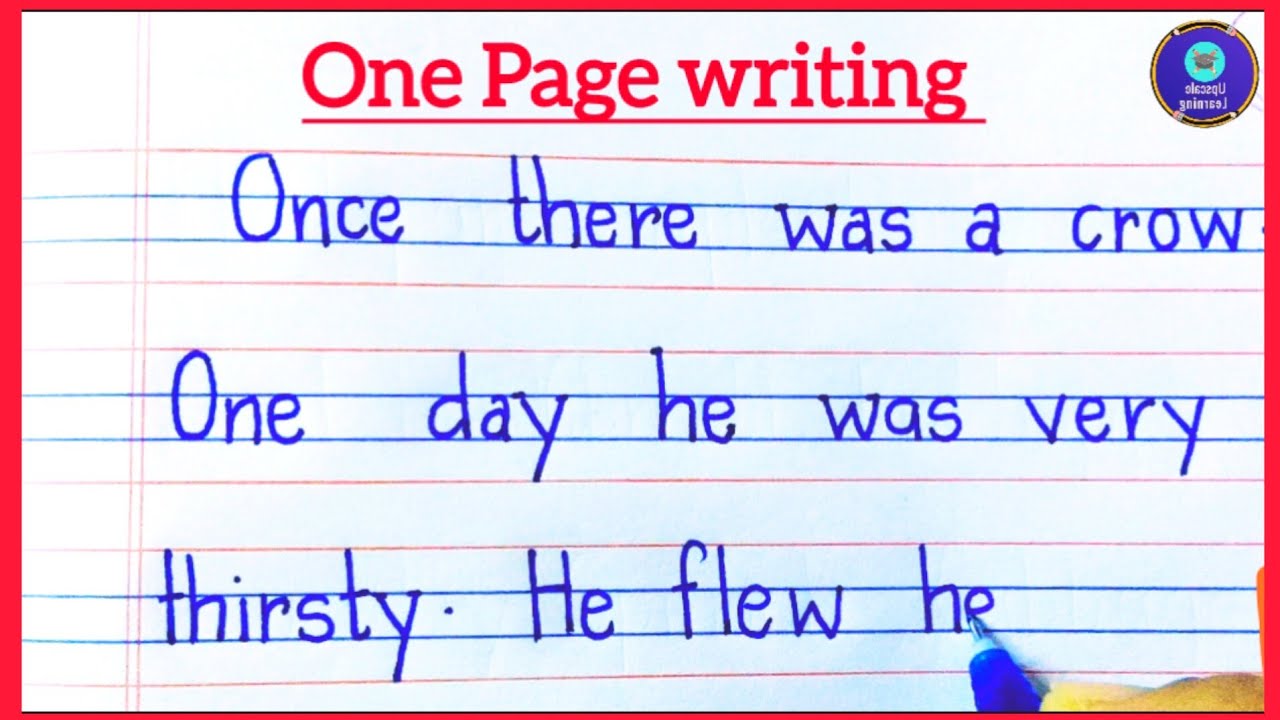 One Page writing
Upscale
Learning
Once there was a crow.
One day he was very
thirsty. He flew he